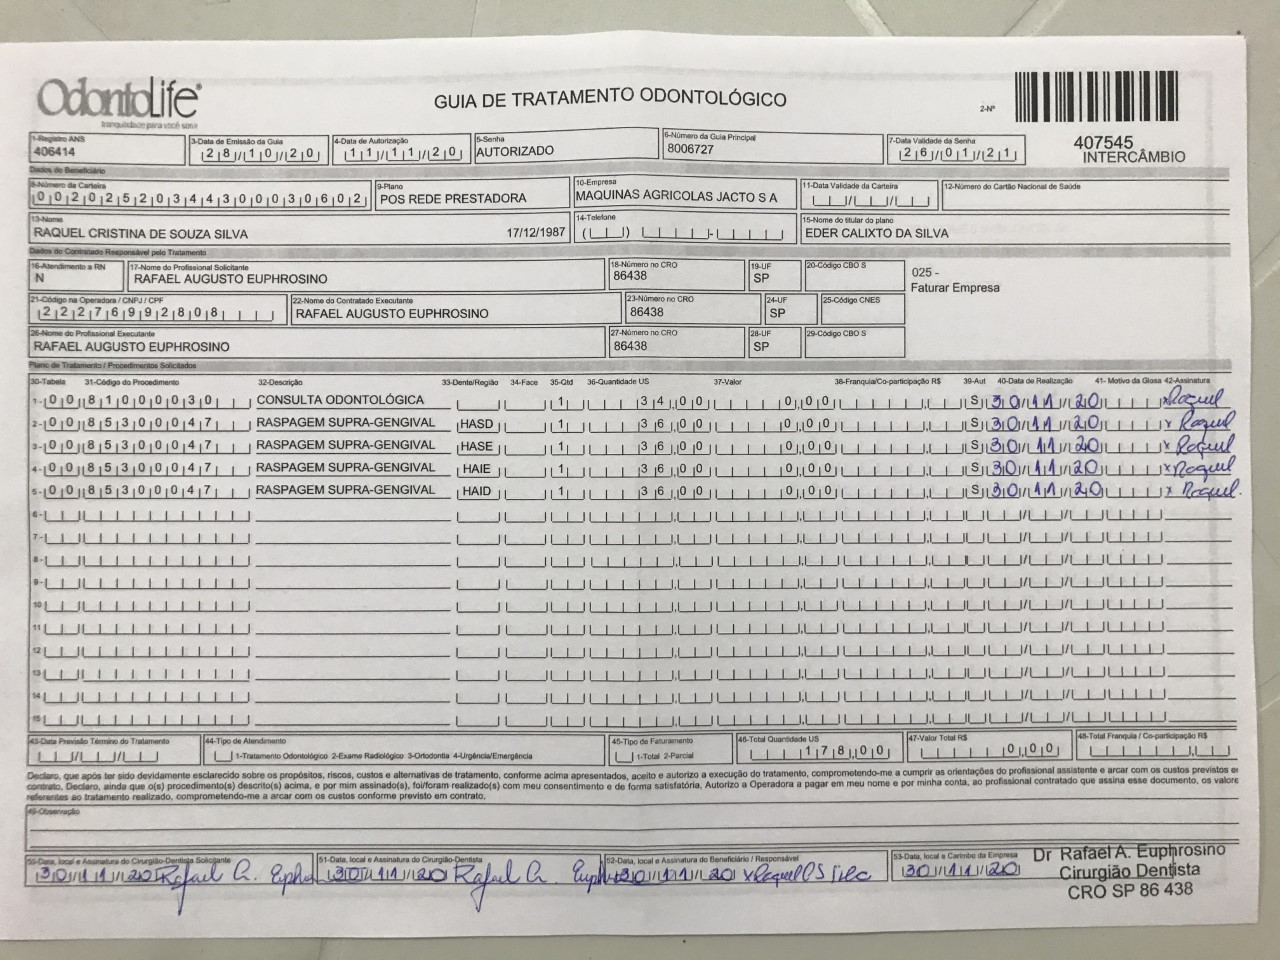 OdontoLife®
tranquilidade para você sorrir
GUIA DE TRATAMENTO ODONTOLÓGICO
2-Nº
407545
INTERCÂMBIO
1-Registro ANS
406414
3-Data de Emissão da Guia
28/10/20
4-Data de Autorização
11/11/20
5-Senha
AUTORIZADO
6-Número da Guia Principal
8006727
7-Data Validade da Senha
26/01/21
Dados do Beneficiário
8-Número da Carteira
00202520344300030602
9-Plano
POS REDE PRESTADORA
10-Empresa
MAQUINAS AGRICOLAS JACTO S A
11-Data Validade da Carteira
12-Número do Cartão Nacional de Saúde
13-Nome
RAQUEL CRISTINA DE SOUZA SILVA 17/12/1987
14-Telefone
15-Nome do titular do plano
EDER CALIXTO DA SILVA
Dados do Contratado Responsável pelo Tratamento
16-Atendimento a RN
N
17-Nome do Profissional Solicitante
RAFAEL AUGUSTO EUPHROSINO
18-Número no CRO
86438
19-UF
SP
20-Código CBO S
025 -
Faturar Empresa
21-Código na Operadora / CNPJ / CPF
22276992808
22-Nome do Contratado Executante
RAFAEL AUGUSTO EUPHROSINO
23-Número no CRO
86438
24-UF
SP
25-Código CNES
26-Nome do Profissional Executante
RAFAEL AUGUSTO EUPHROSINO
27-Número no CRO
86438
28-UF
SP
29-Código CBO S
Plano de Tratamento / Procedimentos Solicitados
30-Tabela 31-Código do Procedimento 32-Descrição 33-Dente/Região 34-Face 35-Qtd 36-Quantidade US 37-Valor 38-Franquia/Co-participação R$ 39-Aut 40-Data de Realização 41- Motivo da Glosa 42-Assinatura
1- 00 81000030 CONSULTA ODONTOLÓGICA 1 34,00 0,00 S 30/11/20 x Raquel
2- 00 85300047 RASPAGEM SUPRA-GENGIVAL HASD 1 36,00 0,00 S 30/11/20 x Raquel
3- 00 85300047 RASPAGEM SUPRA-GENGIVAL HASE 1 36,00 0,00 S 30/11/20 x Raquel
4- 00 85300047 RASPAGEM SUPRA-GENGIVAL HAIE 1 36,00 0,00 S 30/11/20 x Raquel
5- 00 85300047 RASPAGEM SUPRA-GENGIVAL HAID 1 36,00 0,00 S 30/11/20 x Raquel.
6-
7-
8-
9-
10
11
12
13
14
15
43-Data Previsão Término do Tratamento
44-Tipo de Atendimento
1-Tratamento Odontológico 2-Exame Radiológico 3-Ortodontia 4-Urgência/Emergência
45-Tipo de Faturamento
1-Total 2-Parcial
46-Total Quantidade US
178,00
47-Valor Total R$
0,00
48-Total Franquia / Co-participação R$
Declaro, que após ter sido devidamente esclarecido sobre os propósitos, riscos, custos e alternativas de tratamento, conforme acima apresentados, aceito e autorizo a execução do tratamento, comprometendo-me a cumprir as orientações do profissional assistente e arcar com os custos previstos em
contrato. Declaro, ainda que o(s) procedimento(s) descrito(s) acima, e por mim assinado(s), foi/foram realizado(s) com meu consentimento e de forma satisfatória, Autorizo a Operadora a pagar em meu nome e por minha conta, ao profissional contratado que assina esse documento, os valore
referentes ao tratamento realizado, comprometendo-me a arcar com os custos conforme previsto em contrato.
49-Observação
50-Data, local e Assinatura do Cirurgião-Dentista Solicitante
30/11/20 Rafael A. Eupho
51-Data, local e Assinatura do Cirurgião-Dentista
30/11/20 Rafael A. Euph
52-Data, local e Assinatura do Beneficiário / Responsável
30/11/20 x Raquel
53-Data, local e Carimbo da Empresa
30/11/20
Dr Rafael A. Euphrosino
Cirurgião Dentista
CRO SP 86 438